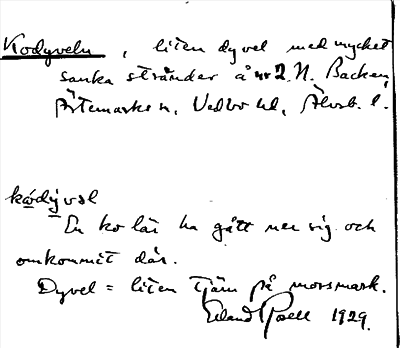 Kodyveln, liten dyvel med mycket
sanka stränder å nr 2. N. Backen,
Ärtemarks sn, Vedbo hd, Älvsb. l.
kódyvəl
En ko lär ha gått ner sig och
omkommit där.
Dyvel = liten tjärn på mossmark.
Erland Rosell 1929.